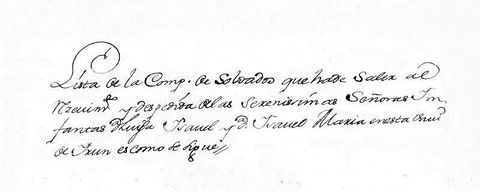 Lista de la Comp.ª de Soldados que hade Salir al
Rezivim.to y despedida de las Serenissimas Señoras In-
fantas D.ª Luisa Isavel y D.ª Isavel Maria en esta
de Irun es como se sigue